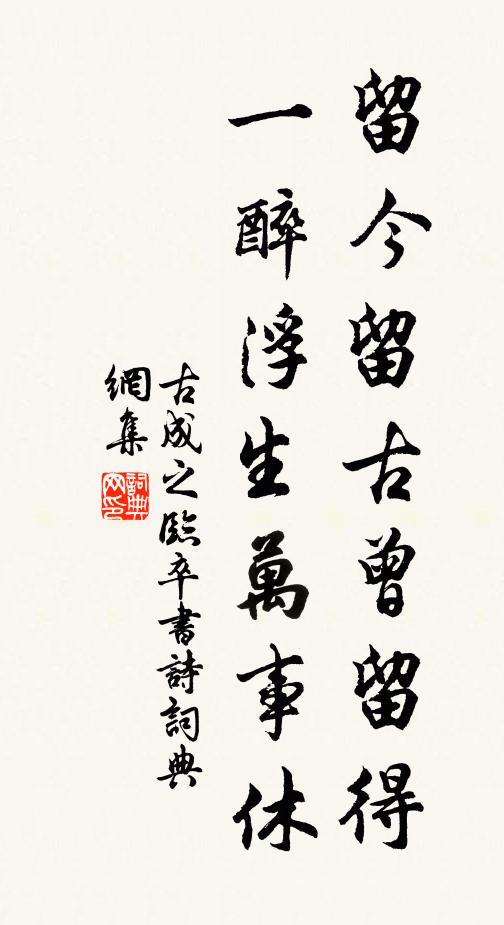 留今留古曾留得
一醉浮生萬事休
古成之臨卒書詩詞典
網集
詞典网印